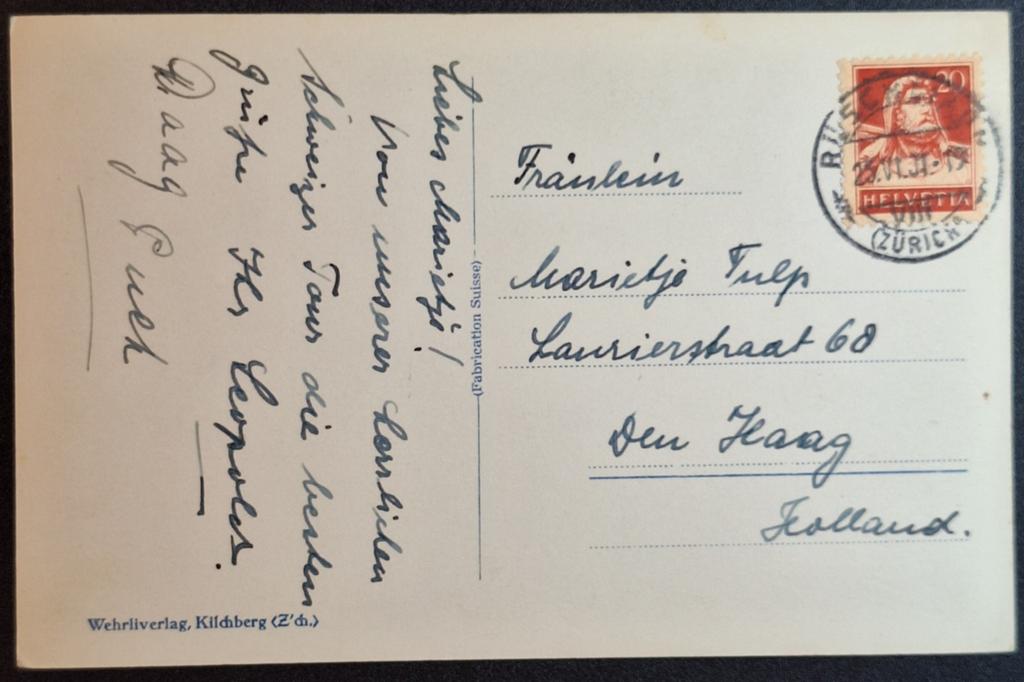 Liebes Marietje!
Von unserer herrlichen
Schweizer Tour die besten
Grüße Ihr Leopold.
(Fabrication Suisse)
Fräulein
Marietje Tulp
Laurierstraat 68
Den Haag
Holland.
20
HELVETIA
23.VI.31.-19
VIII
(ZÜRICH)
Wehrliverlag, Kilchberg (Z'ch.)